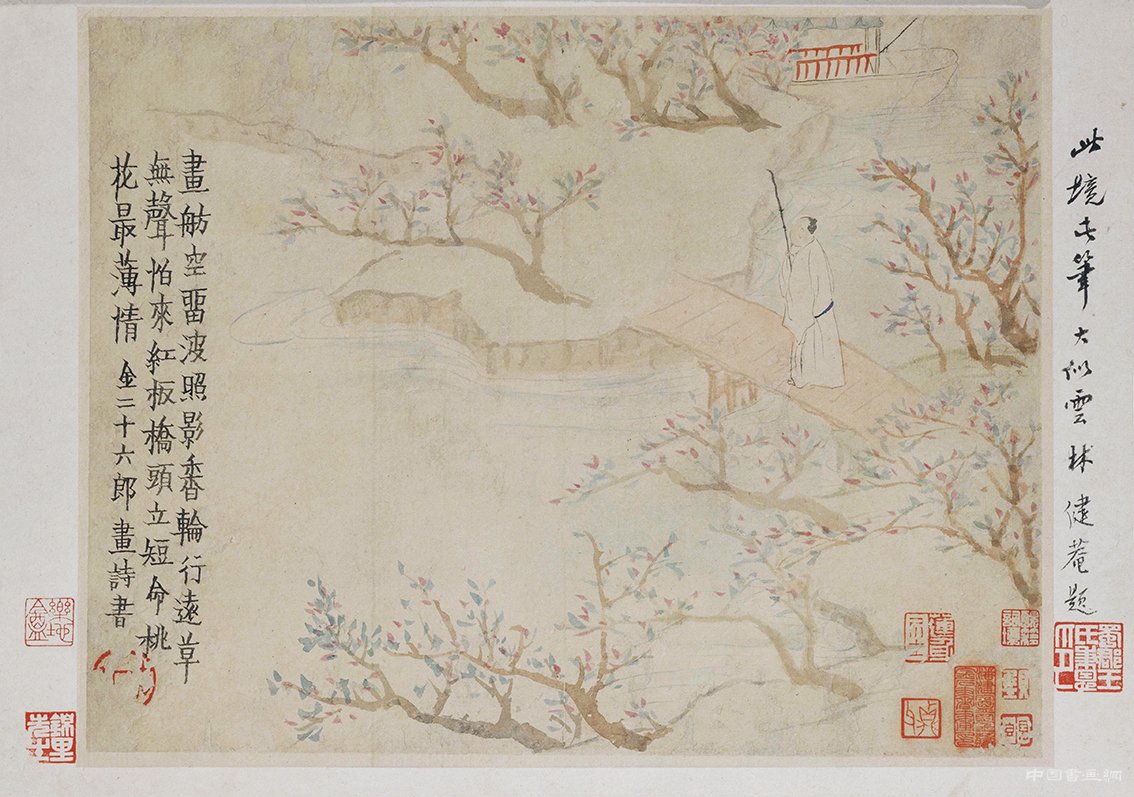 此境此筆大似雲林健菴題
畫舫空留波照影香輪行遠草
無聲怕來紅板橋頭立短命桃
花最薄情 金二十六郎畫詩書
中国書画網